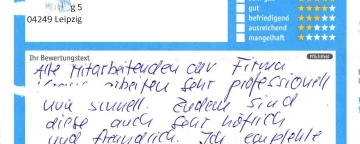 g 5
04249 Leipzig
sehr gut
gut
befriedigend
ausreichend
mangelhaft
Ihr Bewertungstext
Pflichtfeld
Alle Mitarbeitenden der Firma
arbeiten sehr professionell
und schnell. Zudem sind
diese auch sehr höflich
und freundlich. Ich empfehle